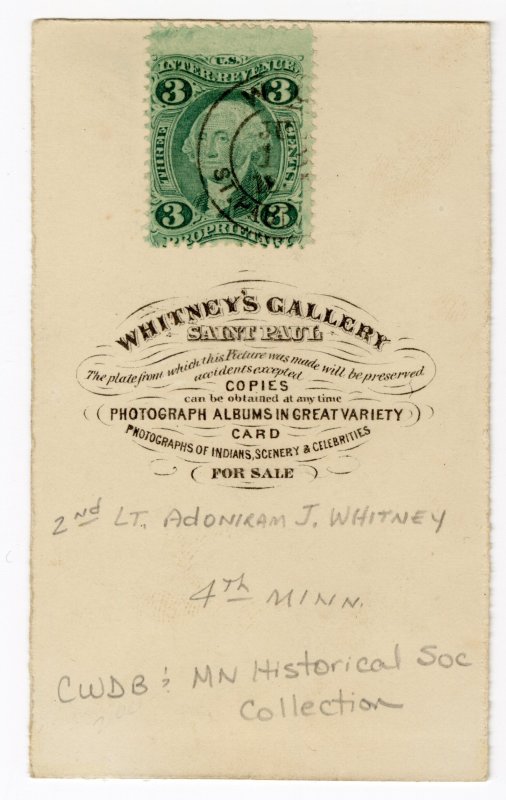 U.S.
INTER. REVENUE.
3 3
THREE CENTS
3 3
PROPRIETARY
WHITNEY'S GALLERY
SAINT PAUL
The plate from which this Picture was made will be preserved
accidents excepted
COPIES
can be obtained at any time
PHOTOGRAPH ALBUMS IN GREAT VARIETY
CARD
PHOTOGRAPHS OF INDIANS, SCENERY & CELEBRITIES
FOR SALE
2nd LT. ADONIRAM J. WHITNEY
4th MINN.
CWDB: MN Historical Soc
Collection